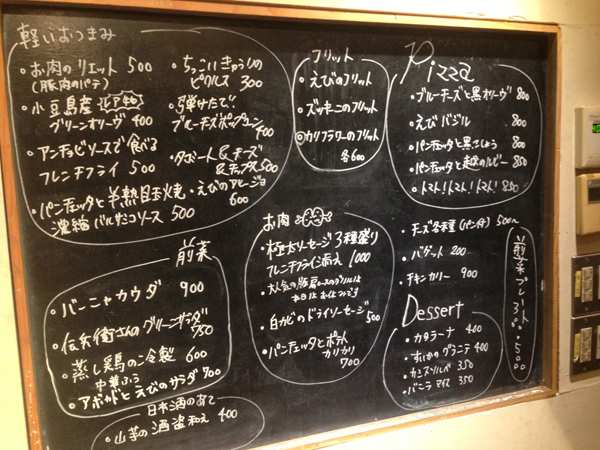 軽いおつまみ
・お肉のリエット 500
(豚肉のパテ)
・小豆島産
グリーンオリーヴ 400
・アンチョビソースで食べる
フレンチフライ 500
・パンチェッタと半熟目玉焼
濃縮バルサミコソース 500
・ちっこいきゅうりの
ピクルス 300
・弾けたて!
ブルーチーズポップコーン
400
・タブート&チーズ
&チップス 500
・えびのアヒージョ
600
フリット
・えびのフリット
・ズッキーニのフリット
◎カリフラワーのフリット
各600
Pizza
・ブルーチーズと黒オリーヴ 800
・えびバジル 800
・パンチェッタと黒こしょう 800
・パンチェッタと 850
・トマト!トマト!トマト! 850
・チーズ各種(パン付) 500〜
・バゲット 200
・チキンカリー 900
前菜プレート 3品 1500
前菜
・バーニャカウダ 900
・伝兵衛さんのグリーンサラダ
750
・蒸し鶏の冷製 600
中華ふう
・アボガドとえびのサラダ 700
日本酒のあて
・山芋の酒盗和え 400
お肉
・極太ソーセージ3種盛り
フレンチフライ添え 1000
・大人気の豚肩ロースのグリルは
本日はお休みです
・白カビのドライソーセージ
500
・パンチェッタとポテト
カリカリ
700
Dessert
・カタラーナ 400
・すいかのグラニテ 400
・カシスソルベ 350
・バニラアイス 350